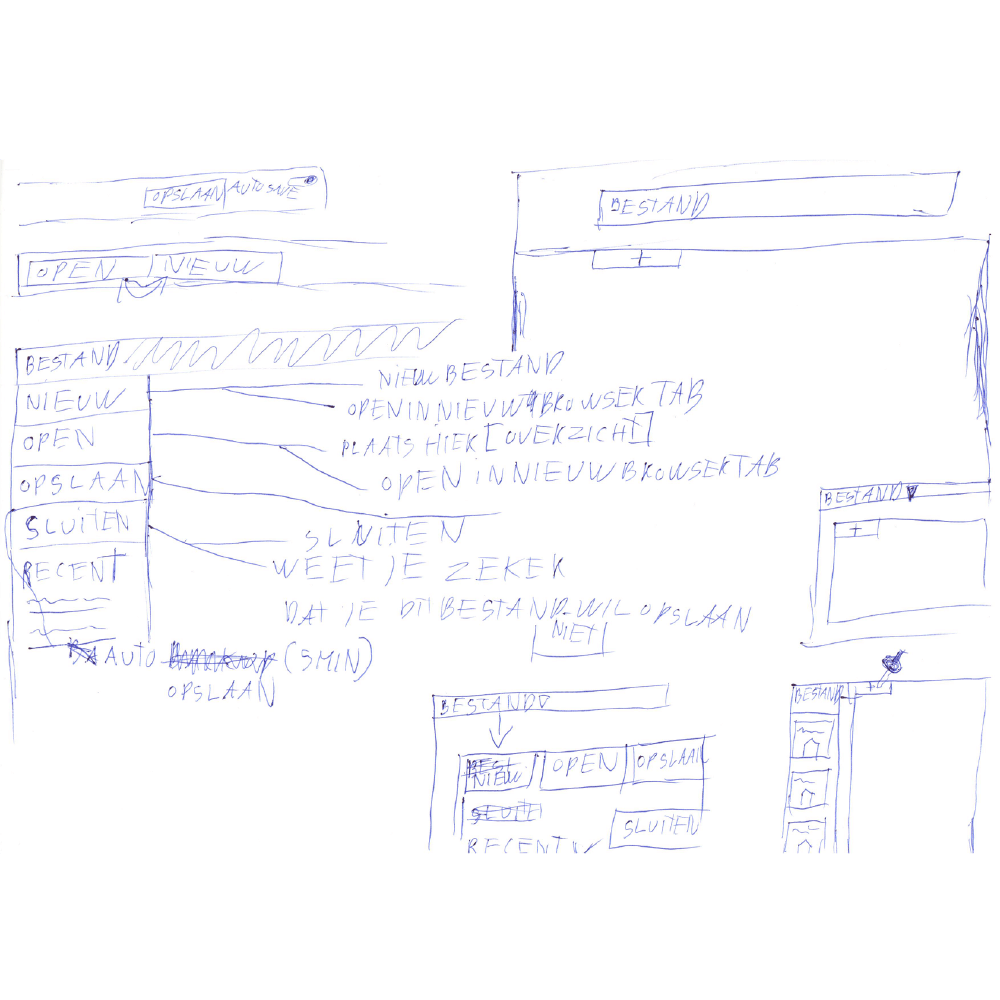 OPSLAAN AUTOSAVE
OPEN NIEUW
BESTAND
NIEUW
OPEN
OPSLAAN
SLUITEN
RECENT
NIEUW BESTAND
OPEN IN NIEUW BROWSER TAB
PLAATS HIER [OVERZICHT]
OPEN IN NIEUW BROWSER TAB
SLUITEN
WEET JE ZEKER
DAT JE DIT BESTAND WIL OPSLAAN
NIET
AUTO (5MIN)
OPSLAAN
BESTAND
+
BESTAND
+
BESTAND
NIEUW OPEN OPSLAAN
SLUITEN
RECENT
BESTAND +